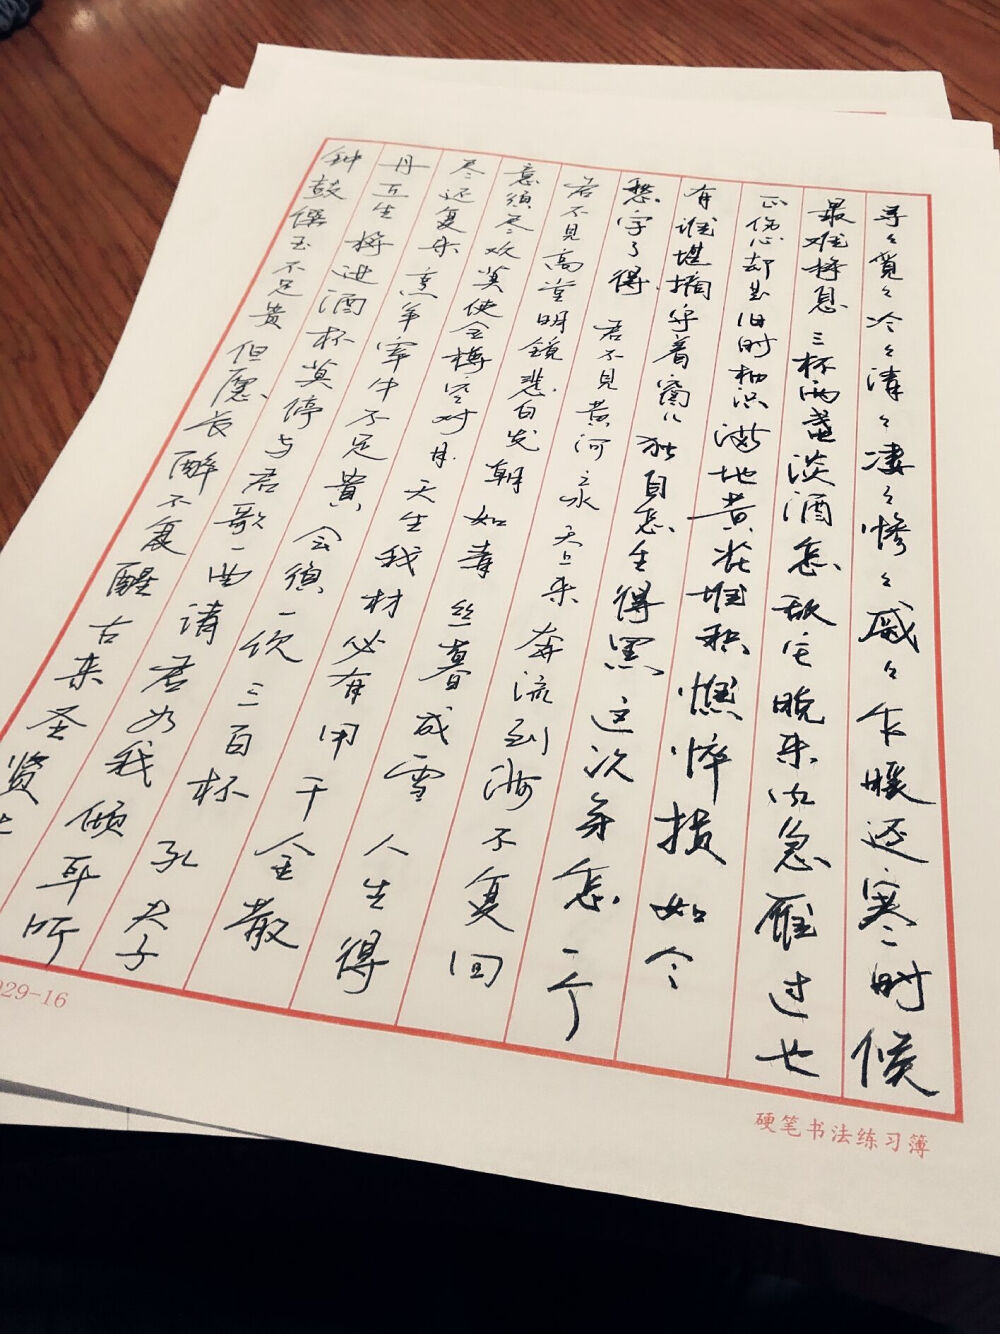 寻々觅々冷々清々凄々惨々戚々乍暖还寒时候
最难将息三杯两盏淡酒怎敌它晚来风急雁过也
正伤心却是旧时相识满地黄花堆积憔悴损如今
有谁堪摘守着窗儿独自怎生得黑这次第怎一个
愁字了得 君不见黄河之水天上来奔流到海不复回
君不见高堂明镜悲白发朝如青丝暮成雪人生得
意须尽欢莫使金樽空对月天生我材必有用千金散
尽还复来烹羊宰牛不足贵会须一饮三百杯孔夫子
丹丘生将进酒杯莫停与君歌一曲请君为我倾耳听
钟鼓馔玉不足贵但愿长醉不复醒古来圣贤
硬笔书法练习簿
029-16